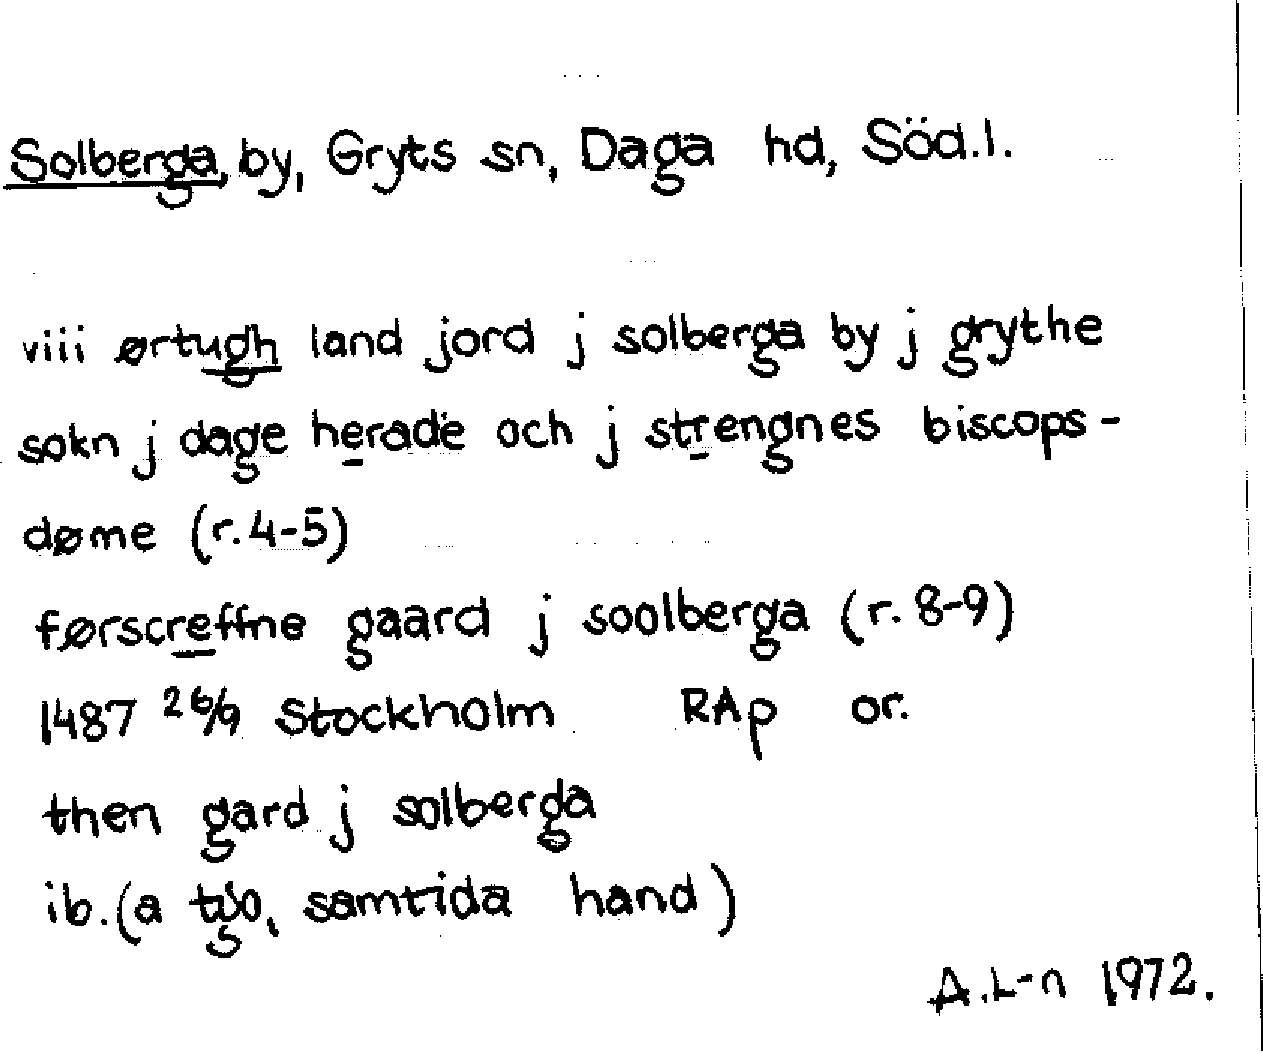 Solberga, by, Gryts sn, Daga hd, Söd.l.
viii ørtugh land jord j solberga by j grythe
sokn j dage herade och j strengnes biscops-
døme (r. 4-5)
førscreffne gaard j soolberga (r. 8-9)
1487 26/9 Stockholm RAp or.
then gard j solberga
ib. (a samtida hand)
A.L-n 1972.